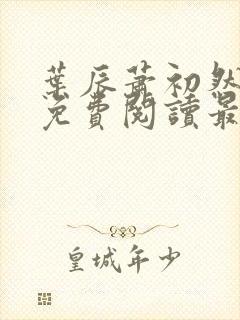 葉辰蕭初然
免費閱讀最
皇城年少